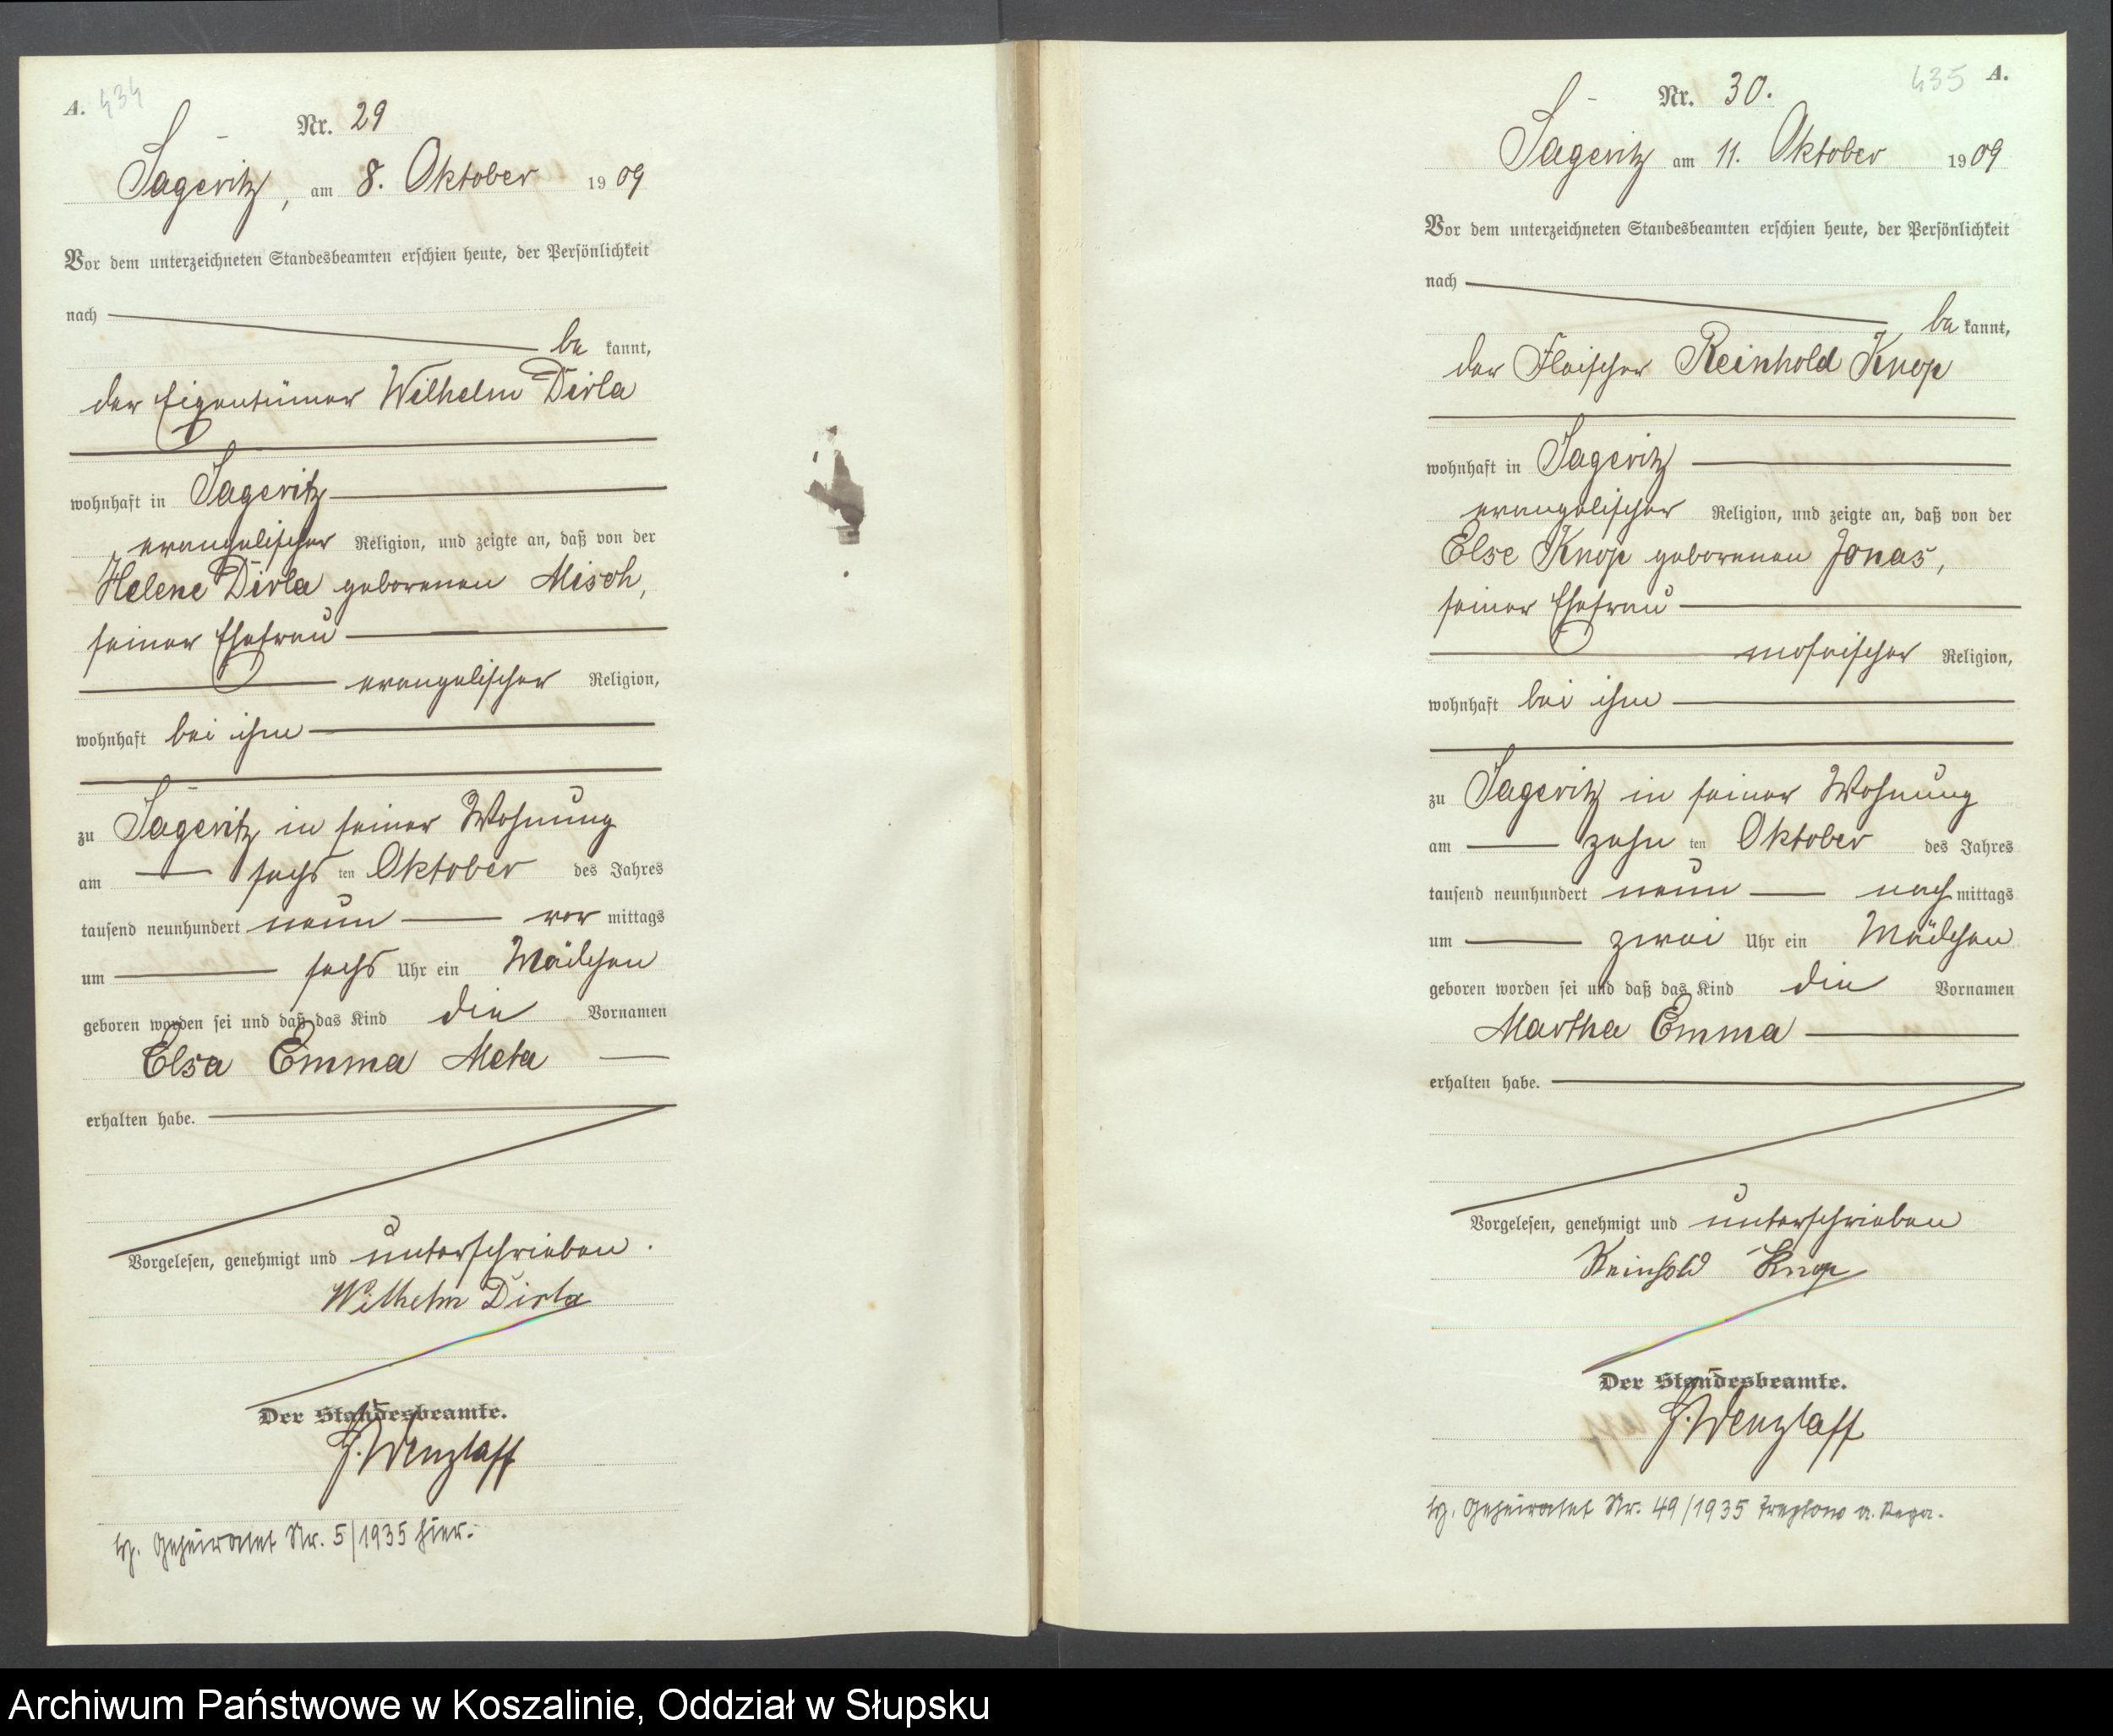 A. 434
Nr. 29
Sageritz, am 8. Oktober 1909
Vor dem unterzeichneten Standesbeamten erschien heute, der Persönlichkeit
nach
be kannt,
der Eigentümer Wilhelm Dirla
wohnhaft in Sageritz
evangelischer Religion, und zeigte an, daß von der
Helene Dirla geborenen Misch,
seiner Ehefrau
evangelischer Religion,
wohnhaft bei ihm
zu Sageritz in seiner Wohnung
am sechs ten Oktober des Jahres
tausend neunhundert neun vor mittags
um sechs Uhr ein Mädchen
geboren worden sei und daß das Kind die Vornamen
Elsa Emma Meta
erhalten habe.
Vorgelesen, genehmigt und unterschrieben.
Wilhelm Dirla
Der Standesbeamte.
Wenzlaff
Geheiratet Nr. 5/1935 hier.
435 A.
Nr. 30.
Sageritz am 11. Oktober 1909
Vor dem unterzeichneten Standesbeamten erschien heute, der Persönlichkeit
nach
be kannt,
der Fleischer Reinhold Knop
wohnhaft in Sageritz
evangelischer Religion, und zeigte an, daß von der
Else Knop geborenen Jonas,
seiner Ehefrau
mosaischer Religion,
wohnhaft bei ihm
zu Sageritz in seiner Wohnung
am zehn ten Oktober des Jahres
tausend neunhundert neun nach mittags
um zwei Uhr ein Mädchen
geboren worden sei und daß das Kind die Vornamen
Martha Emma
erhalten habe.
Vorgelesen, genehmigt und unterschrieben
Reinhold Knop
Der Standesbeamte.
Wenzlaff
Geheiratet Nr. 49/1935 Treptow a. Rega.
Archiwum Państwowe w Koszalinie, Oddział w Słupsku